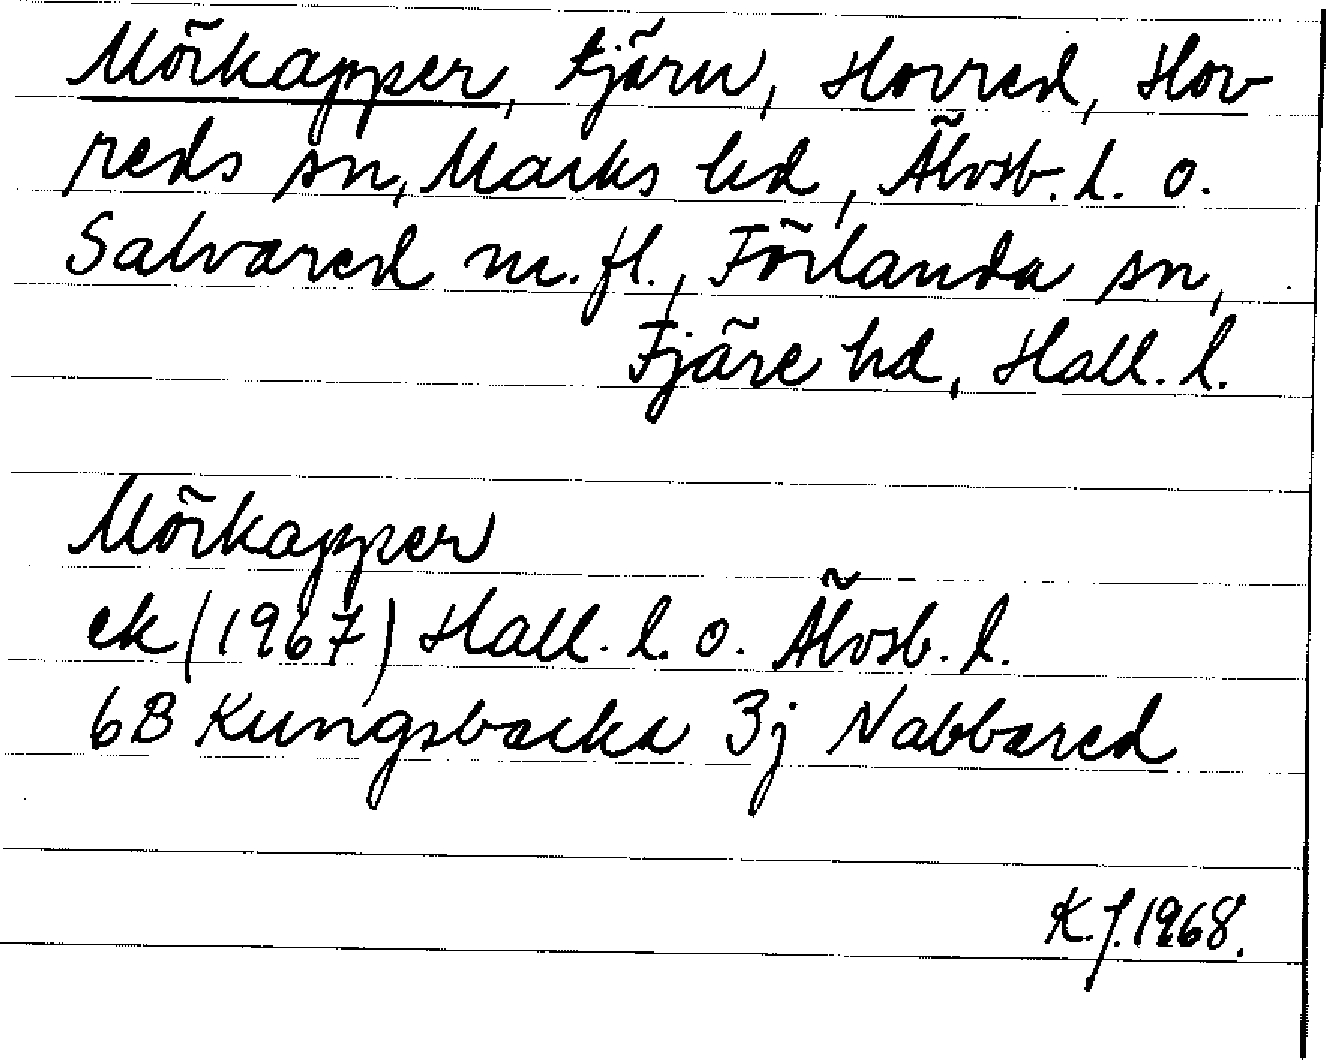 Mörkapper, tjärn, Horred, Hor-
reds sn, Marks hd, Älvsb. l. o.
Salvared m.fl., Förlanda sn,
Fjäre hd, Hall. l.
Mörkapper
ek (1967) Hall. l. o. Älvsb. l.
6B Kungsbacka 3j Nabbared
K.J. 1968.